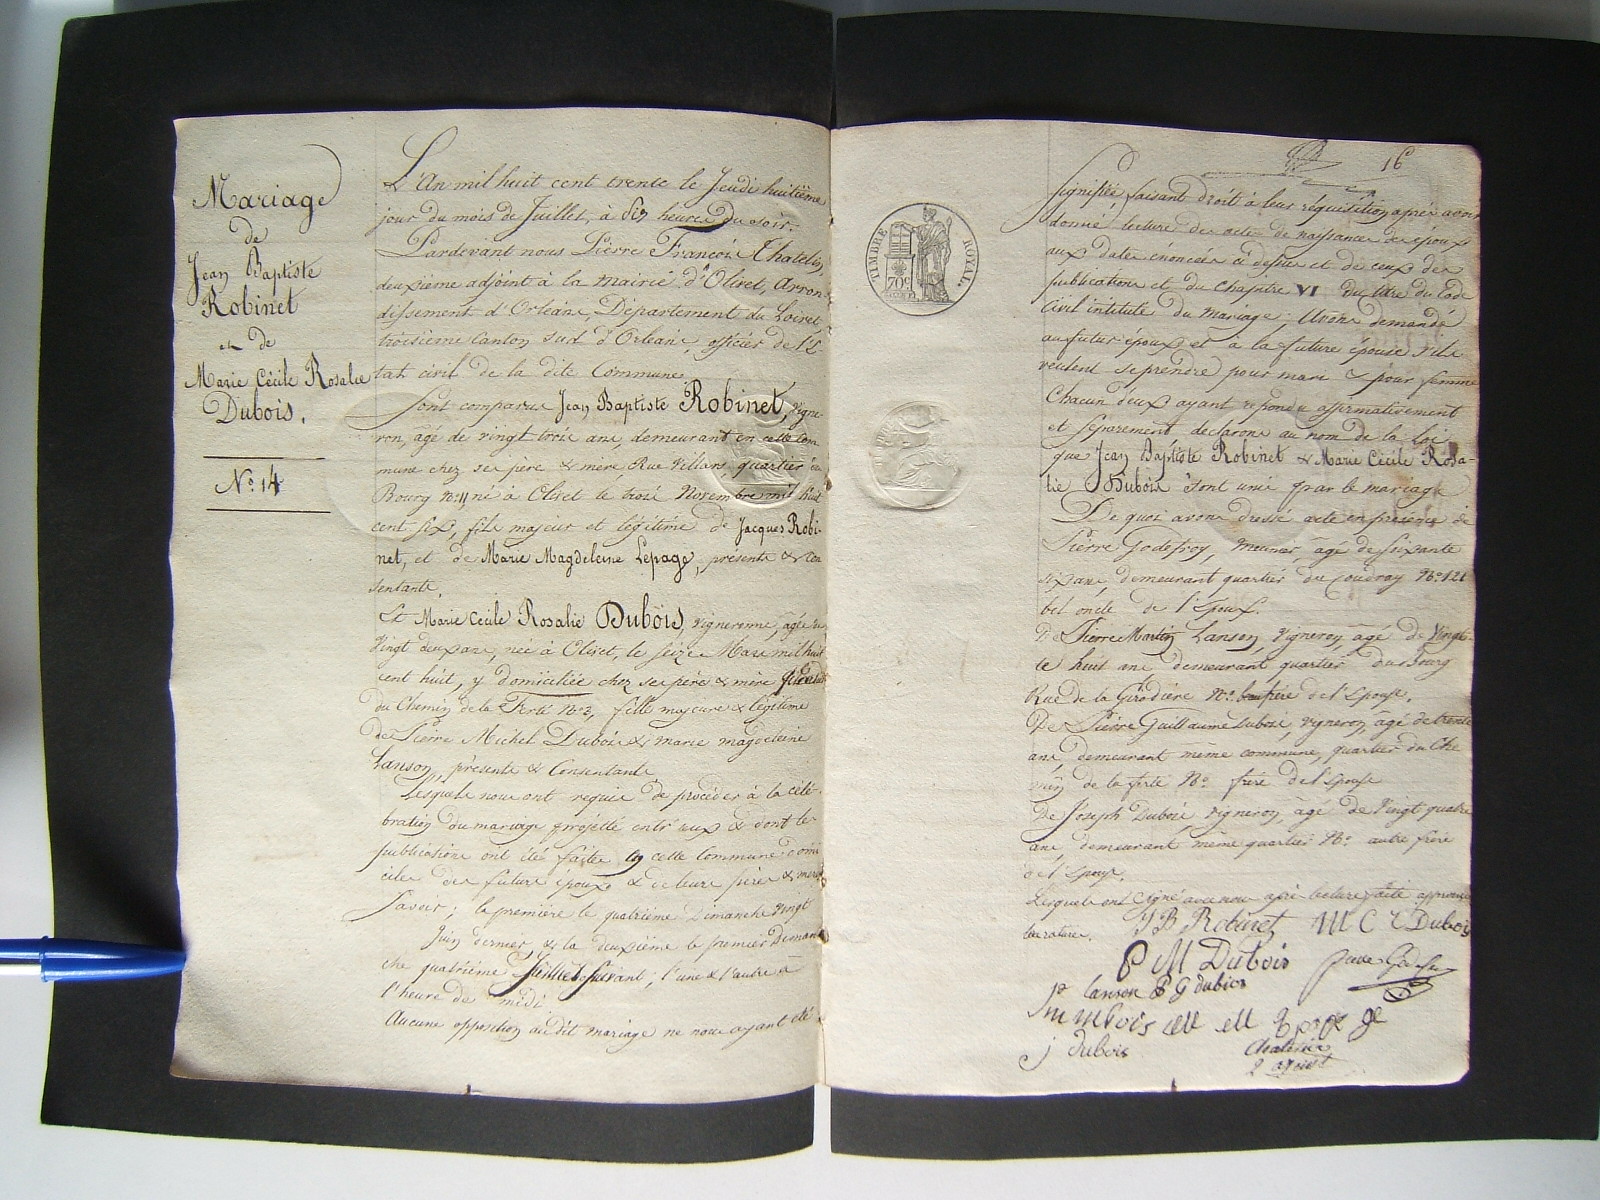 Mariage
de
Jean Baptiste
Robinet
et de
Marie Cécile Rosalie
Dubois.
No. 14
L'An mil huit cent trente le Jeudi huitième
jour du mois de Juillet, à Six heures du soir.
Pardevant nous Pierre François Chatelin,
deuxième adjoint à la mairie d'Olivet, Arron-
dissement d'Orléans, Département du Loiret,
troisième Canton sud d'Orléans, officier de l'E-
tat civil de la dite Commune.
Sont comparus Jean Baptiste Robinet, vigne-
ron, agé de vingt trois ans, demeurant en cette com
mune chez ses père & mère Rue Villars, quartier du
Bourg No. 11, né à Olivet le trois Novembre mil huit
cent six, fils majeur et légitime de Jacques Robi-
net, et de Marie Magdeleine Lepage, présents & con
sentants.
Et Marie Cécile Rosalie Dubois vigneronne, agée de
Vingt deux ans, née à Olivet, le seize Mars mil huit
cent huit, y domiciliée chez ses père & mère
du Chemin de la Ferté No. 3, fille majeure & légitime
de Pierre Michel Dubois & marie magdeleine
Lanson, présents & Consentants
Lesquels nous ont requis de procéder à la célé-
bration du mariage projetté entr'eux & dont les
publications ont été faites en cette Commune domi
ciles des futurs époux & de leurs pères & mères
Savoir; la première le quatrième Dimanche Vingt
Juin dernier, & la deuxième le premier Diman
che quatrième Juillet suivant; l'une & l'autre à
l'heure de midi
Aucune opposition audit mariage ne nous ayant été
16
TIMBRE ROYAL.
70c
signifiée, faisant droit à leur réquisition, après avoir
donné lecture des actes de naissance des époux
aux dates énoncées ci dessus et de ceux des
publications et du Chapitre VI du titre du Code
Civil intitulé du Mariage; Avons demandé
au futur époux et à la future épouse s'ils
veulent se prendre pour mari & pour femme
Chacun d'eux ayant répondu affirmativement
et séparément déclarons au nom de la Loi
que Jean Baptiste Robinet & Marie Cécile Rosa-
lie Dubois sont unis par le mariage
De quoi avons dressé acte en présence de
Pierre Godefroy, meunier, agé de soixante
six ans, demeurant quartier du Coudray No. 121
bel oncle de l'Epoux.
De Pierre Martin Lanson, Vigneron, agé de Vingt-
te huit ans demeurant quartier du Bourg
Rue de la Girodière No. frère de l'Epouse.
De Pierre Guillaume Dubois, vigneron, agé de trente
ans, demeurant même commune, quartier du Che
min de la ferté No. frère de l'Epouse
De Joseph Dubois, vigneron, agé de Vingt quatre
ans, demeurant même quartier No. autre frère
de l'Epouse.
Lesquels ont signé avec nous après lecture faite
J B Robinet M C R Dubois
P M Dubois
Pr Lanson P G dubois
j dubois